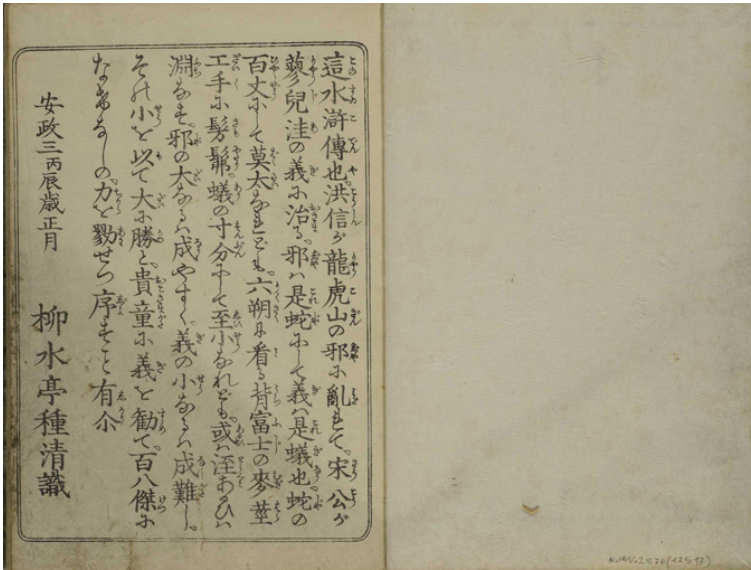 這水滸傳也。洪信が龍虎山の邪に亂れて。宋公が
蓼兒洼の義に治る。邪ハ是蛇にして義ハ是蟻也。蛇の
百丈にして莫太なれども。六朔に看る背富士の麥莖
工手に髣髴。蟻の寸分にして至小なれども。或ハ洼あるひハ
淵をす。邪の大なるハ成やすく。義の小なるハ成難し。
その小を以て大に勝と。貴童に義を勸て。百八傑に
なぞらへしの。力を勠せつ序すこと有尒
安政三丙辰歳正月
柳水亭種清識
N.INV.2576(12517)